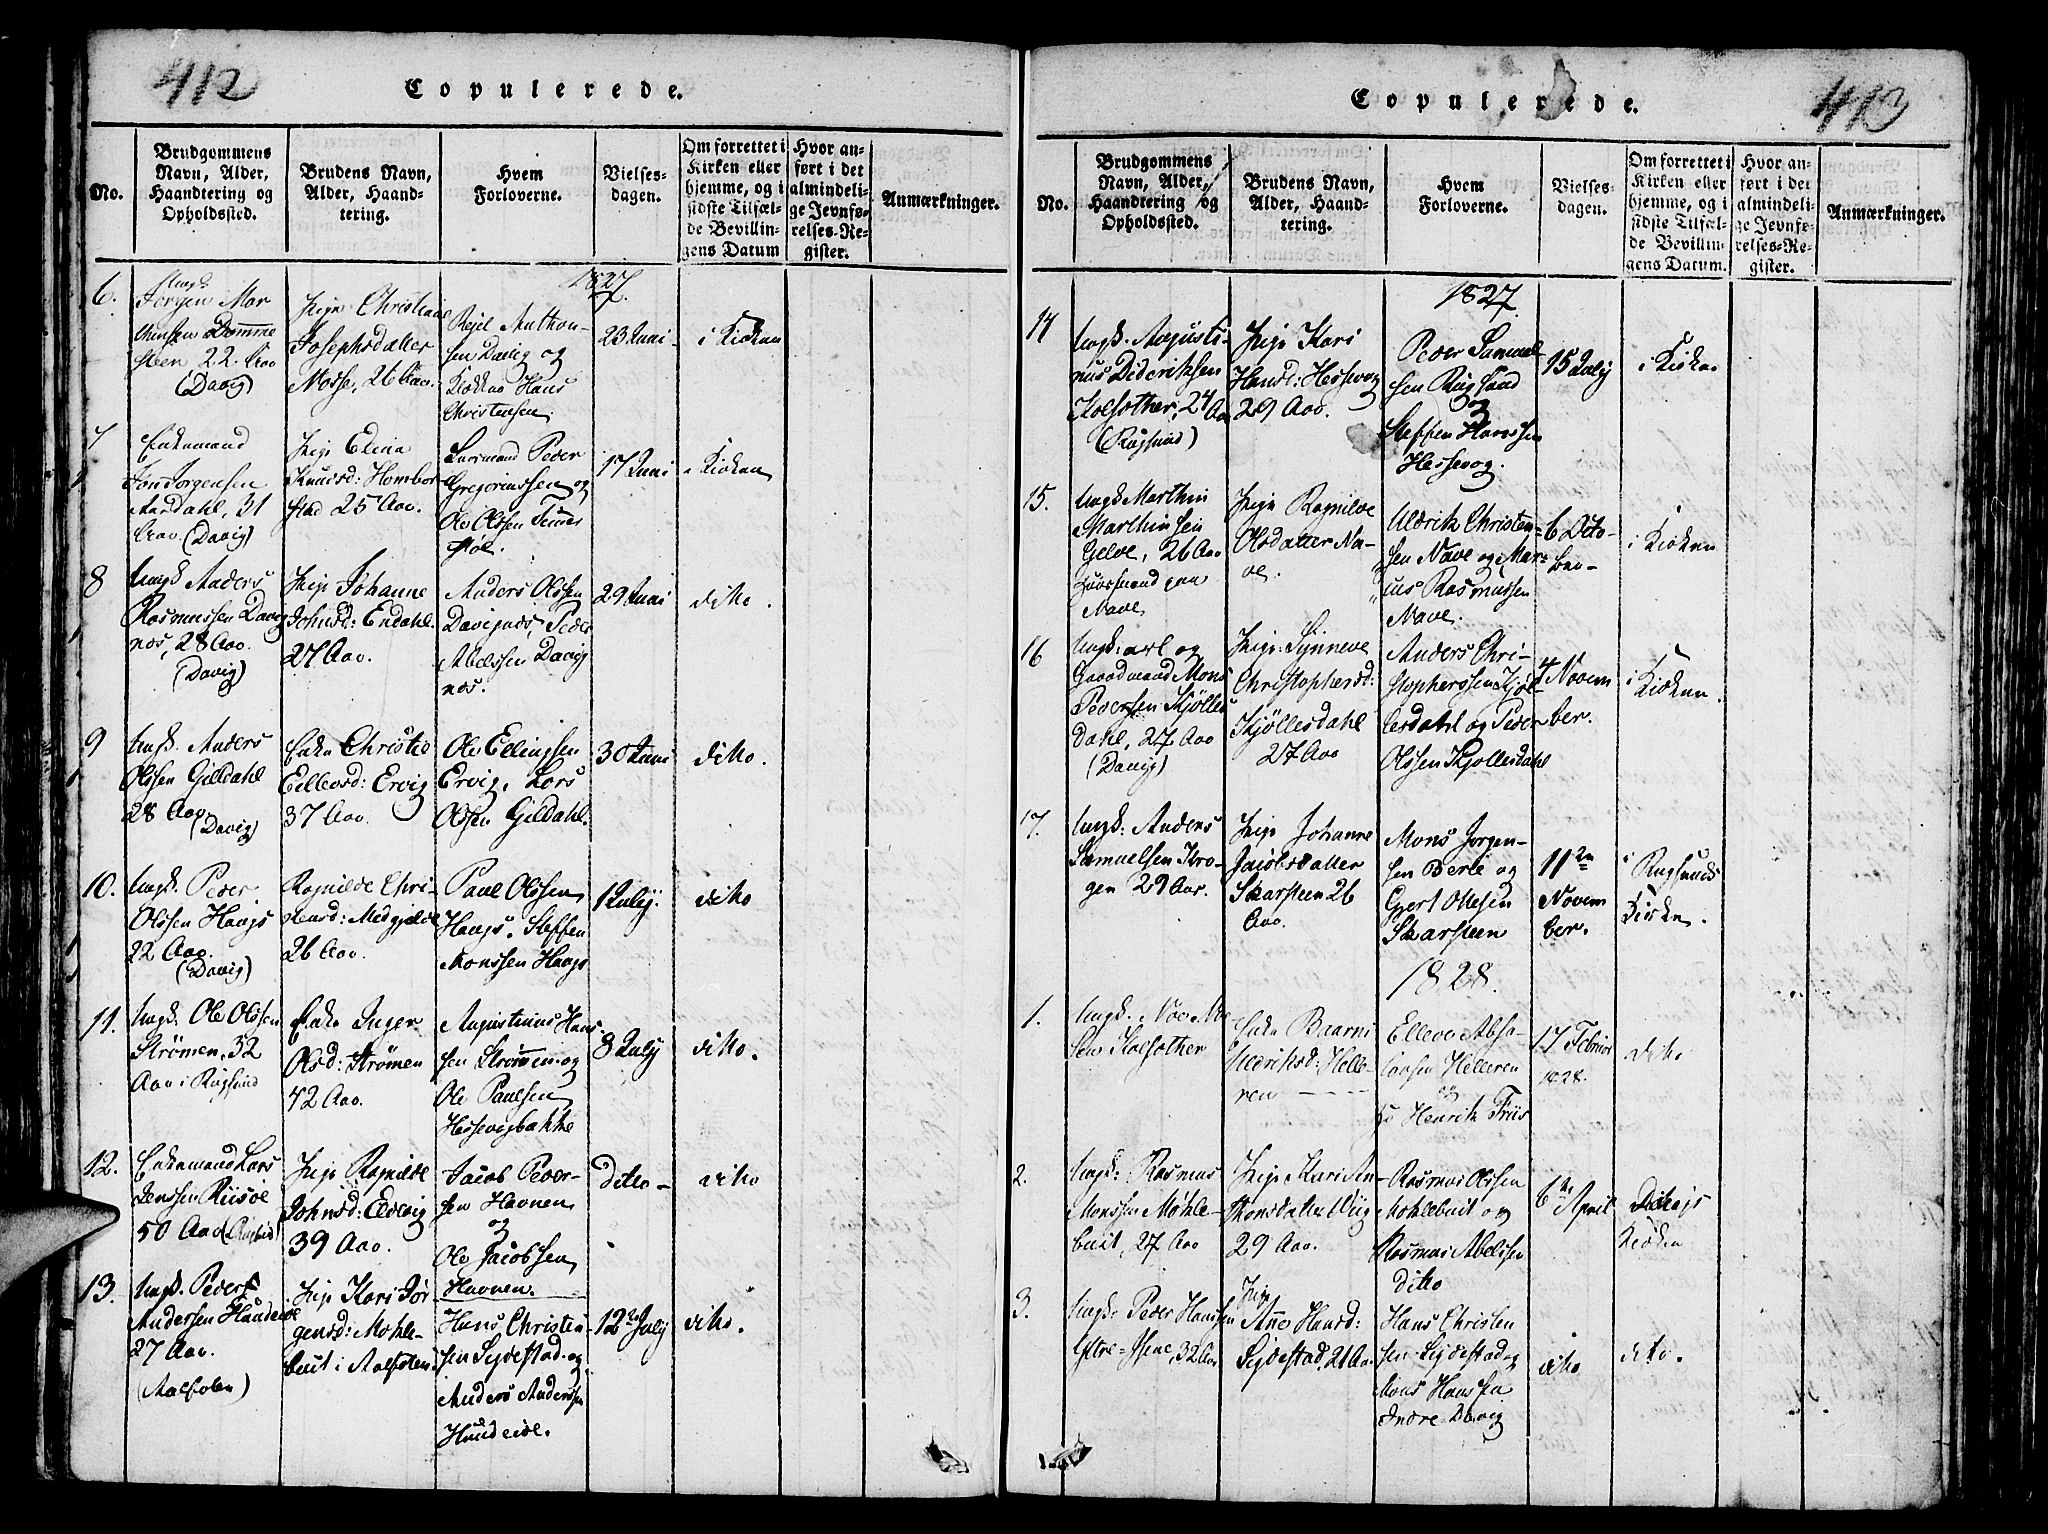 412
Copulerede.
No.
Brudgommens
Navn, Alder,
Haandtering og
Opholdssted.
Brudens Navn,
Alder, Haand-
tering.
Hvem
Forloverne.
Vielses-
dagen.
Om forrettet i
Kirken eller
hjemme, og i
sidste Tilfæl-
de Bevillin-
gens Datum
Hvor an-
ført i det
almindeli-
ge Jevnfø-
relses-Re-
gister.
Anmærkninger.
1827.
6.
Ungk.
Jørgen Mor
22. Aar
(Davig)
Pige Christiane
Josephsdatter
Mosse, 26 Aar.
Anthon-
sen Davig og
Hans
Christensen.
23 Juni
i Kirken
7
Enkemand
Jon Jørgensen
Aardahl, 31
Aar. (Davig)
Pige Elena
Knudsd: Hombor
stad 25 Aar.
Peder
Gregoriussen og
Ole Olssen
17 Juni
i Kirken
8
Ungk Anders
Rasmussen Davig
nes, 28 Aar.
(Davig)
Pige Johanne
Johnsd: Endahl.
27 Aar.
Anders Olssen
Davignes, Peder
Abelssen Davig
nes.
29 Juni
ditto.
9
Ungk. Anders
Olssen Gilldahl
28 Aar.
(Davig)
Enke Christie
Ellevsd: Ervig
37 Aar.
Ole Ellingsen
Ervig, Lars
Olssen Gjeldahl.
30 Juni
ditto.
10.
Ungk. Peder
Olssen Haugs
22 Aar.
(Davig)
Ragnilde Chri-
stensd: Medgjelde
26 Aar.
Paul Olssen
Haugs. Steffen
Monssen Haugs
1 July.
ditto
11.
Ungk. Ole Olssen
Strømen, 32
Aar i Rugsund
Enke Inger
Olsd: Strømen
42 Aar.
Augustinus Hans
sen Strömen og
Ole Paulsen
Hessevigbakke
8 July
ditto.
12.
Enkemand Lars
Jenssen Riisøe
50 Aar
Pige Ragnilde
Johnsd: Eldevig
39 Aar.
Jacob Peder-
sen Havnen
og
Ole Jacobsen
Havnen.
Ditto
ditto
13.
Ungk. Peder
Andersen Hundeide
27 Aar.
(Aalfoten)
Pige Kari Jør
gensd: Mohle-
buit i Aalfoten
Hans Christen
sen Sejdestad og
Anders Anderssen
Hundeide.
12te July
ditto.
413
Copulerede.
No.
Brudgommens
Navn, Alder,
Haandtering og
Opholdssted.
Brudens Navn,
Alder, Haand-
tering.
Hvem
Forloverne.
Vielses-
dagen.
Om forrettet i
Kirken eller
hjemme, og i
sidste Tilfæl-
de Bevillin-
gens Datum.
Hvor an-
ført i det
almindeli-
ge Jevnfø-
relses-Re-
gister.
Anmærkninger.
1827
14
Ungk. Augusti-
nus Dideriksen
Kolsæther, 24 Aar
(Rugsund)
Pige Kari
Hansd: Hessevog
29 Aar.
Peder Samuel-
sen Rugsund
og
Steffen Hanssen
Hessevog.
15 July
i Kirken
15.
Ungk Marthin
Marthinsen
Gelde, 26 Aar
Nave
Pige Ragnilde
Olsdatter Na-
ve.
Uldrik Christen-
sen Nave og Mar-
cus Rasmussen
Nave.
6 Octo-
ber
i Kirken
16
Ungkarl og
Gaardmand Mons
Pedersen Kjølles
Dahl, 27 Aar
(Davig)
Pige Synneve
Christophersd:
Kjøllesdahl
27 Aar
Anders Chri-
stopherssen Kjøl-
lesdahl og Peder
Olssen Kjøllesdahl
4 Novem
ber.
i Kirken.
17.
Ungk: Anders
Samuelsen Kro-
gen 29 Aar.
Pige Johanne
Jacobsdatter
Skarsteen 26
Aar.
Mons Jørgen-
sen Berle og
Gjert Ottesen
Skarsteen
11te
Novem
ber.
i Rugsunds
Kirke.
1828.
1.
Ungk.
Kolsæther
Enke Baarni
Hedriksd: Helle-
ren
Ellev Absa-
lonsen Helleren
og
Henrik Friis
17 Februar
1828.
ditto
2.
Ungk: Rasmus
Monssen Møhle-
buit, 27 Aar
Pige Kari An-
thonsdatter Viig
29 Aar.
Rasmus Olssen
Mohlebuit og
Rasmus Abelssen
ditto
6te April
Kirke
3.
Ungk: Peder Hanssen
Yttre-Isene, 32 Aar
Pige
Anne Hansd:
Sejdestad, 21 Aar
Hans Christen
sen Sejdestad og
Mons Hanssen
Indre Davig
ditto
ditto.